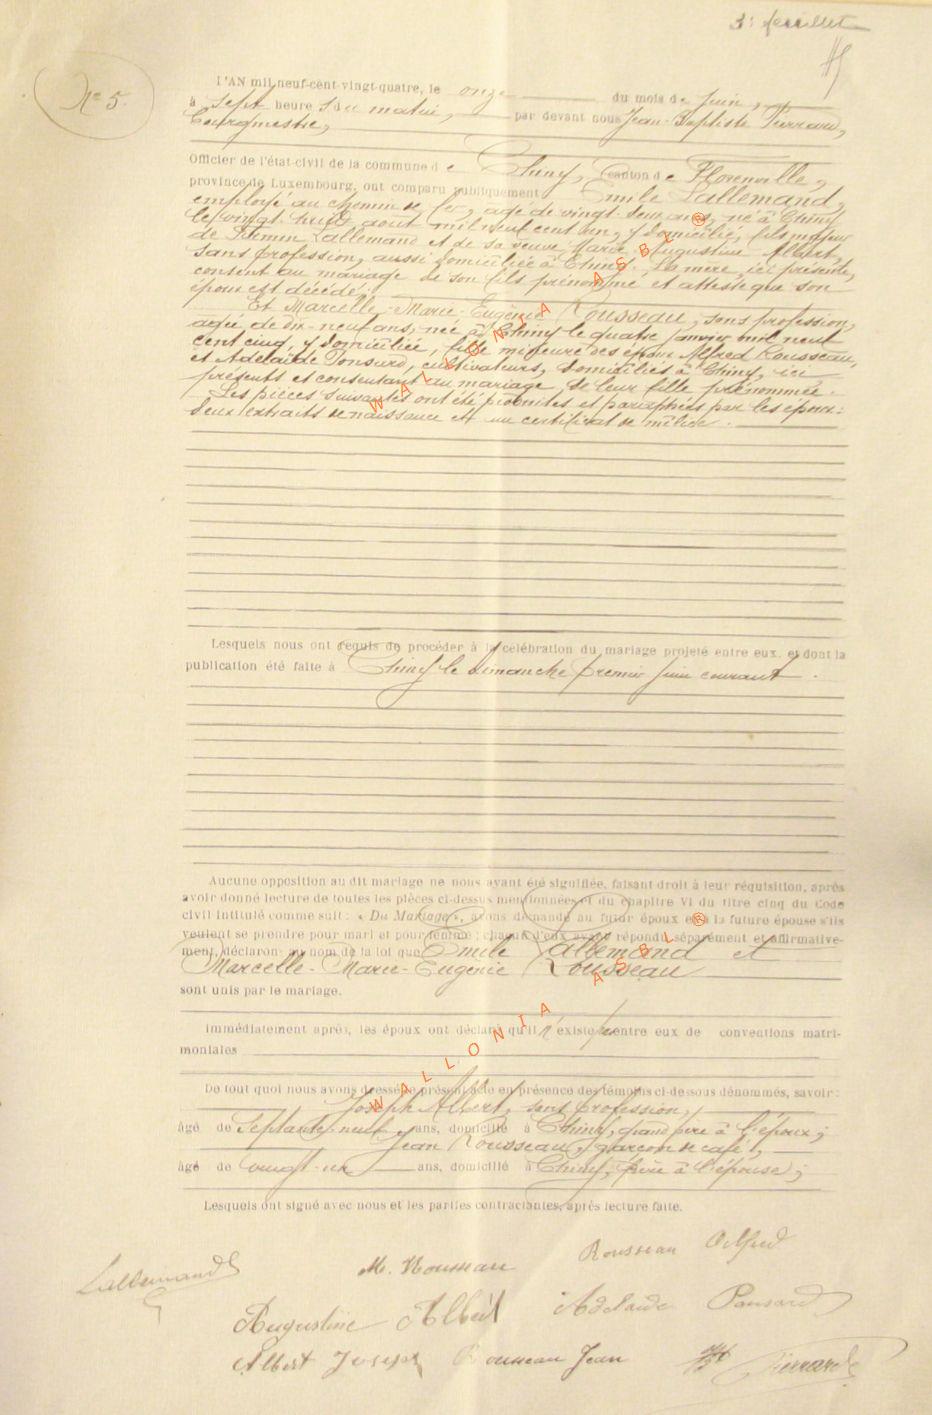 3e feuillet
N° 5.
L'AN mil neuf-cent-vingt-quatre, le onze du mois de juin,
à sept heures du matin, par devant nous Jean-Baptiste Pierrard,
Bourgmestre,
Officier de l'état-civil de la commune de Chiny, Canton de Florenville,
province de Luxembourg, ont comparu publiquement Emile Lallemand,
employé au chemin de fer, âgé de vingt-deux ans, né à Chiny
le vingt-huit août mil neuf cent un, y domicilié, fils majeur
de Firmin Lallemand et de sa veuve Marie Augustine Albert,
sans profession, aussi domiciliée à Chiny. La mère, ici présente,
consent au mariage de son fils prénommé et atteste que son
époux est décédé.
Et Marcelle-Marie-Eugénie Rousseau, sans profession,
âgée de dix-neuf ans, née à Chiny le quatre janvier mil neuf
cent cinq, y domiciliée, fille mineure des époux Alfred Rousseau,
et Adelaïde Ponsard, cultivateurs, domiciliés à Chiny, ici
présents et consentant au mariage de leur fille prénommée.
Les pièces suivantes ont été produites et paraphées par les époux:
deux extraits de naissance et un certificat de milice.
Lesquels nous ont requis de procéder à la célébration du mariage projeté entre eux, et dont la
publication été faite à Chiny le dimanche premier juin courant.
Aucune opposition au dit mariage ne nous ayant été signifiée, faisant droit à leur réquisition, après
avoir donné lecture de toutes les pièces ci-dessus mentionnées et du chapitre VI du titre cinq du Code
civil intitulé comme suit : « Du Mariage », avons demandé au futur époux et à la future épouse s'ils
veulent se prendre pour mari et pour femme ; chacun d'eux ayant répondu séparément et affirmative-
ment, déclarons au nom de la loi que Emile Lallemand et
Marcelle-Marie-Eugénie Rousseau
sont unis par le mariage.
Immédiatement après, les époux ont déclaré qu'il n'existe pas entre eux de conventions matri-
moniales
De tout quoi nous avons dressé le présent acte en présence des témoins ci-dessous dénommés, savoir :
Joseph Albert, sans profession,
âgé de septante-neuf ans, domicilié à Chiny, grand père à l'époux ;
Jean Rousseau, garçon de café,
âgé de vingt-un ans, domicilié à Chiny, frère à l'épouse ;
Lesquels ont signé avec nous et les parties contractantes, après lecture faite.
Lallemand M. Rousseau Rousseau Alfred
Augustine Albert Adelaïde Ponsard
Albert Joseph Rousseau Jean Pierrard
WALLONIA ASBL ®
WALLONIA ASBL ®